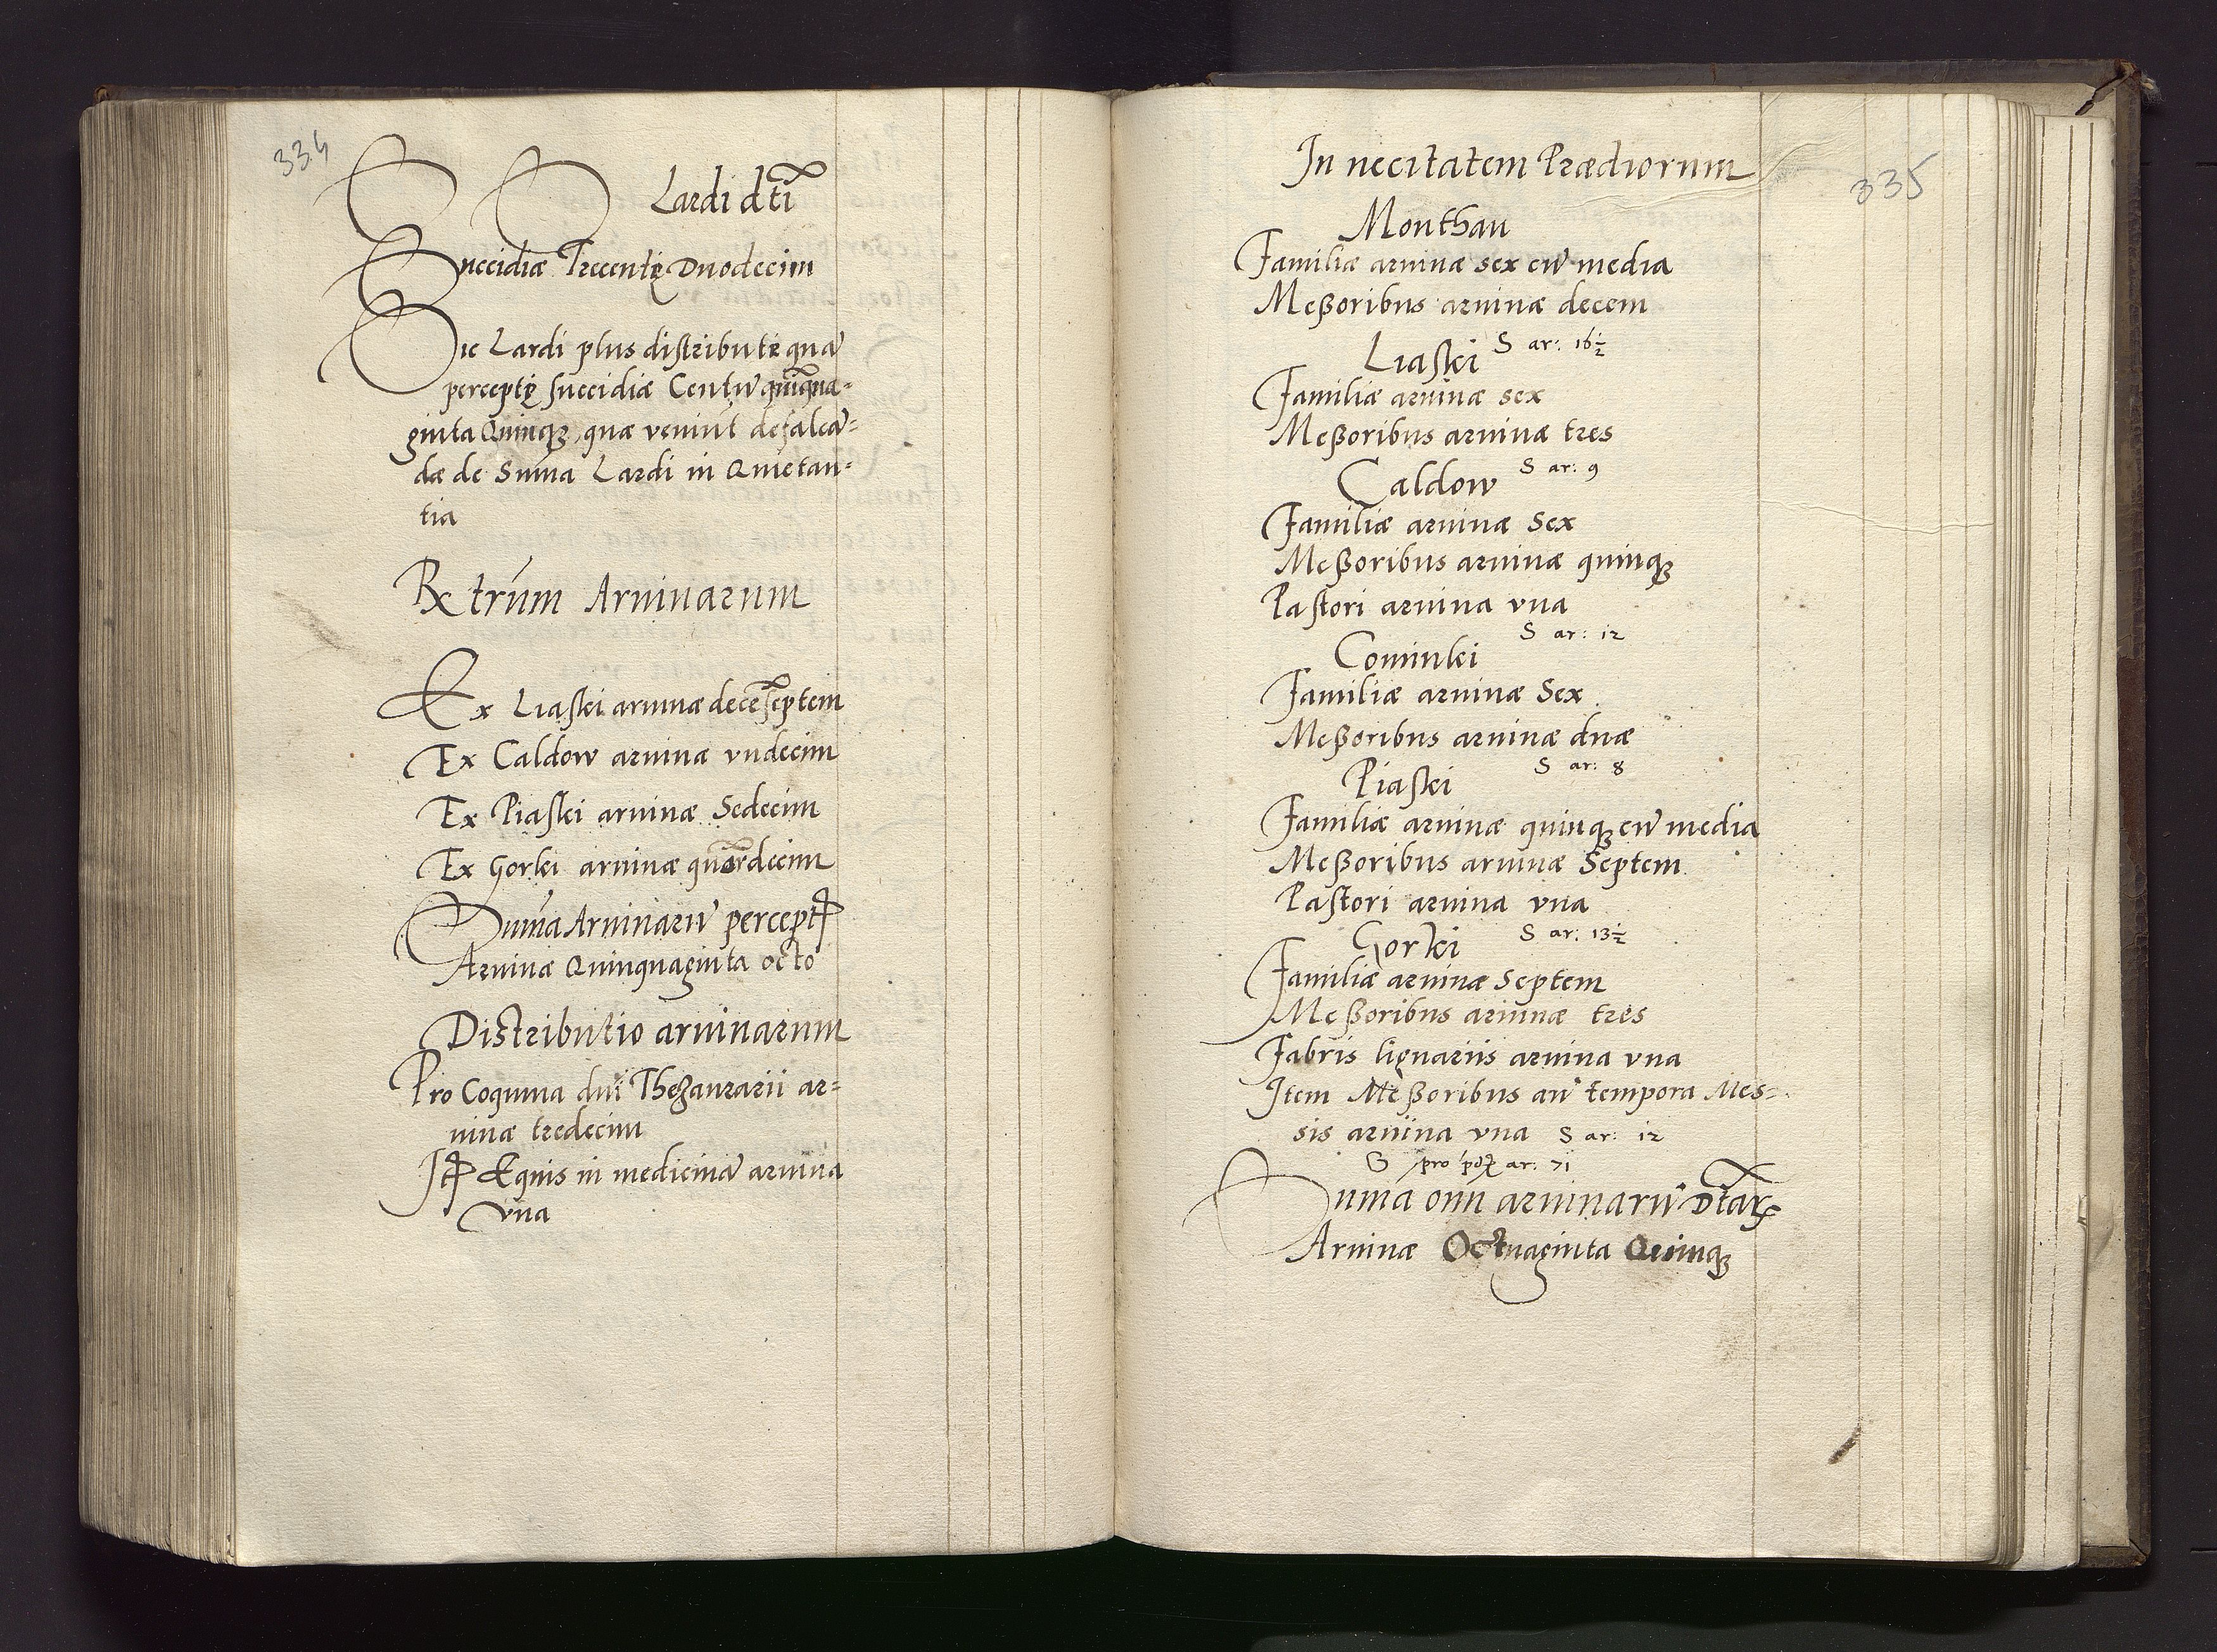 334
S S Lardi dti
Succidiæ Trecentę Duodecim
Sic Lardi plus distributę quā
perceptę succidiæ Centū quīqua=
ginta Quinqȝ, quæ veniūt defalcā=
dæ de Suma Lardi in Quietan=
tia
Rx trum Aruinarum
Ex Liaski aruinæ decēseptem
Ex Caldow aruinæ vndecim
Ex Piaski aruinæ Sedecim
Ex Gorki aruinæ quordecim
Suma Aruinarū percept
Aruinæ Quinquaginta octo
Distributio aruinarum
Pro Coquina dni Thezaurarii ar=
uinæ tredecim
It Equis in medicinā aruina
vna
335
In necitatem Prædiorum
Monthau
Familiæ aruinæ sex cū media
Meßoribus aruinæ decem
S ar: 16½
Liaski
Familiæ aruinæ sex
Meßoribus aruinæ tres
S ar: 9
Caldow
Familiæ aruinæ Sex
Meßoribus aruinæ quinqȝ
Pastori aruina vna
S ar: 12
Cominki
Familiæ aruinæ Sex
Meßoribus aruinæ duæ
S ar: 8
Piaski
Familiæ aruinæ quinqȝ cū media
Meßoribus aruinæ Septem
Pastori aruina vna
S ar: 13½
Gorki
Familiæ aruinæ Septem
Meßoribus aruinæ tres
Fabris lignariis aruina vna
Item Meßoribus an tempora Mes=
sis aruina vna S ar: 12
S pro ar: 71
Suma oīm aruinarū Dtar
Aruinæ Octuaginta Quinqȝ